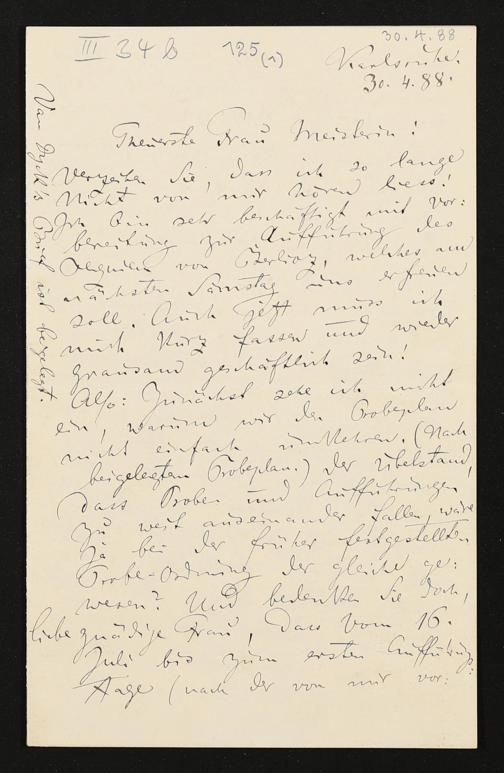 III 34 b
125 (1)
30.4.88
Karlsruhe.
30.4.88.
Theuerste Frau Meisterin!
Verzeihen Sie, dass ich so lange
Nicht von mir hören liess!
Ich bin sehr beschäftigt mit Vor:
bereitung zur Aufführung des
Requiem von Berlioz, welches am
nächsten Samstag uns erfreuen
soll. Auch jetzt muss ich
mich kurz fassen und wieder
grausam geschäftlich sein!
Also: Zunächst sehe ich nicht
ein, warum wir den Probeplan
nicht einfach umkehren. (Nach
beigelegtem Probeplan.) Der Übelstand,
dass Proben und Aufführungen
zu weit auseinander fallen, wäre
ja bei der früher festgestellten
Probe-Ordnung der gleiche ge:
wesen? Und bedenken Sie doch,
liebe gnädige Frau, dass vom 16.
Juli bis zum ersten Aufführungs:
Tage (nach der von mir vor:
Van Dyck's Brief ist beigelegt.